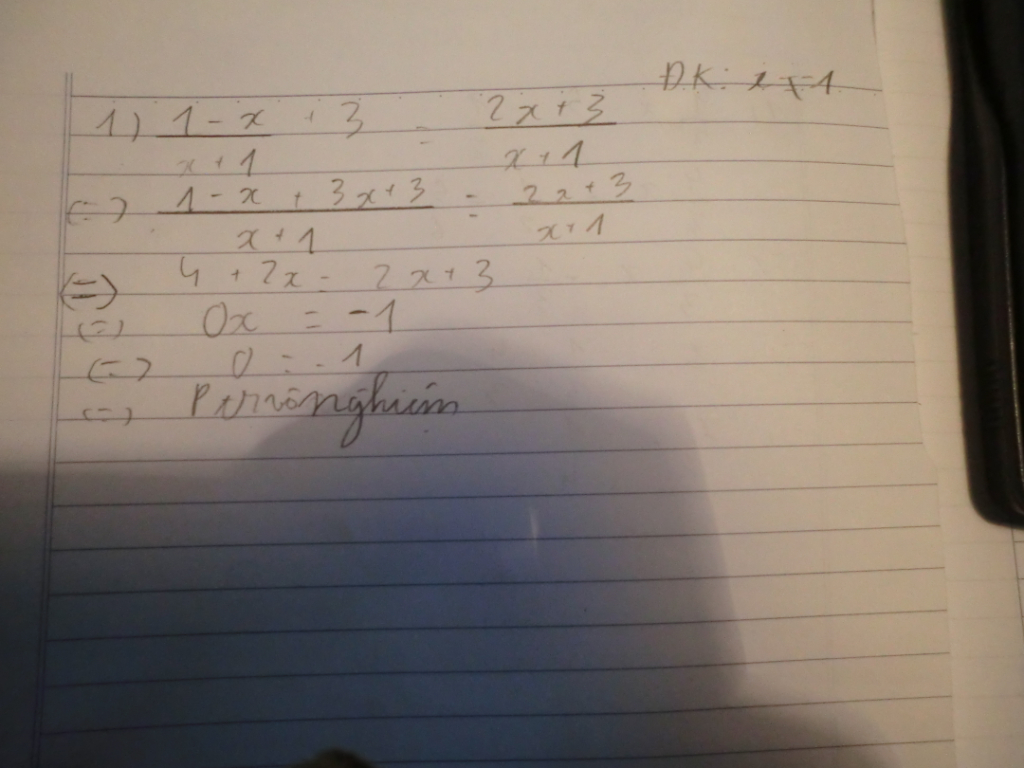 ĐK: x ≠ -1
1) (1 - x)/(x + 1) + 3 = (2x + 3)/(x + 1)
(=) (1 - x + 3x + 3)/(x + 1) = (2x + 3)/(x + 1)
(=) 4 + 2x = 2x + 3
(=) 0x = -1
(=) 0 = -1
(=) Pt vô nghiệm